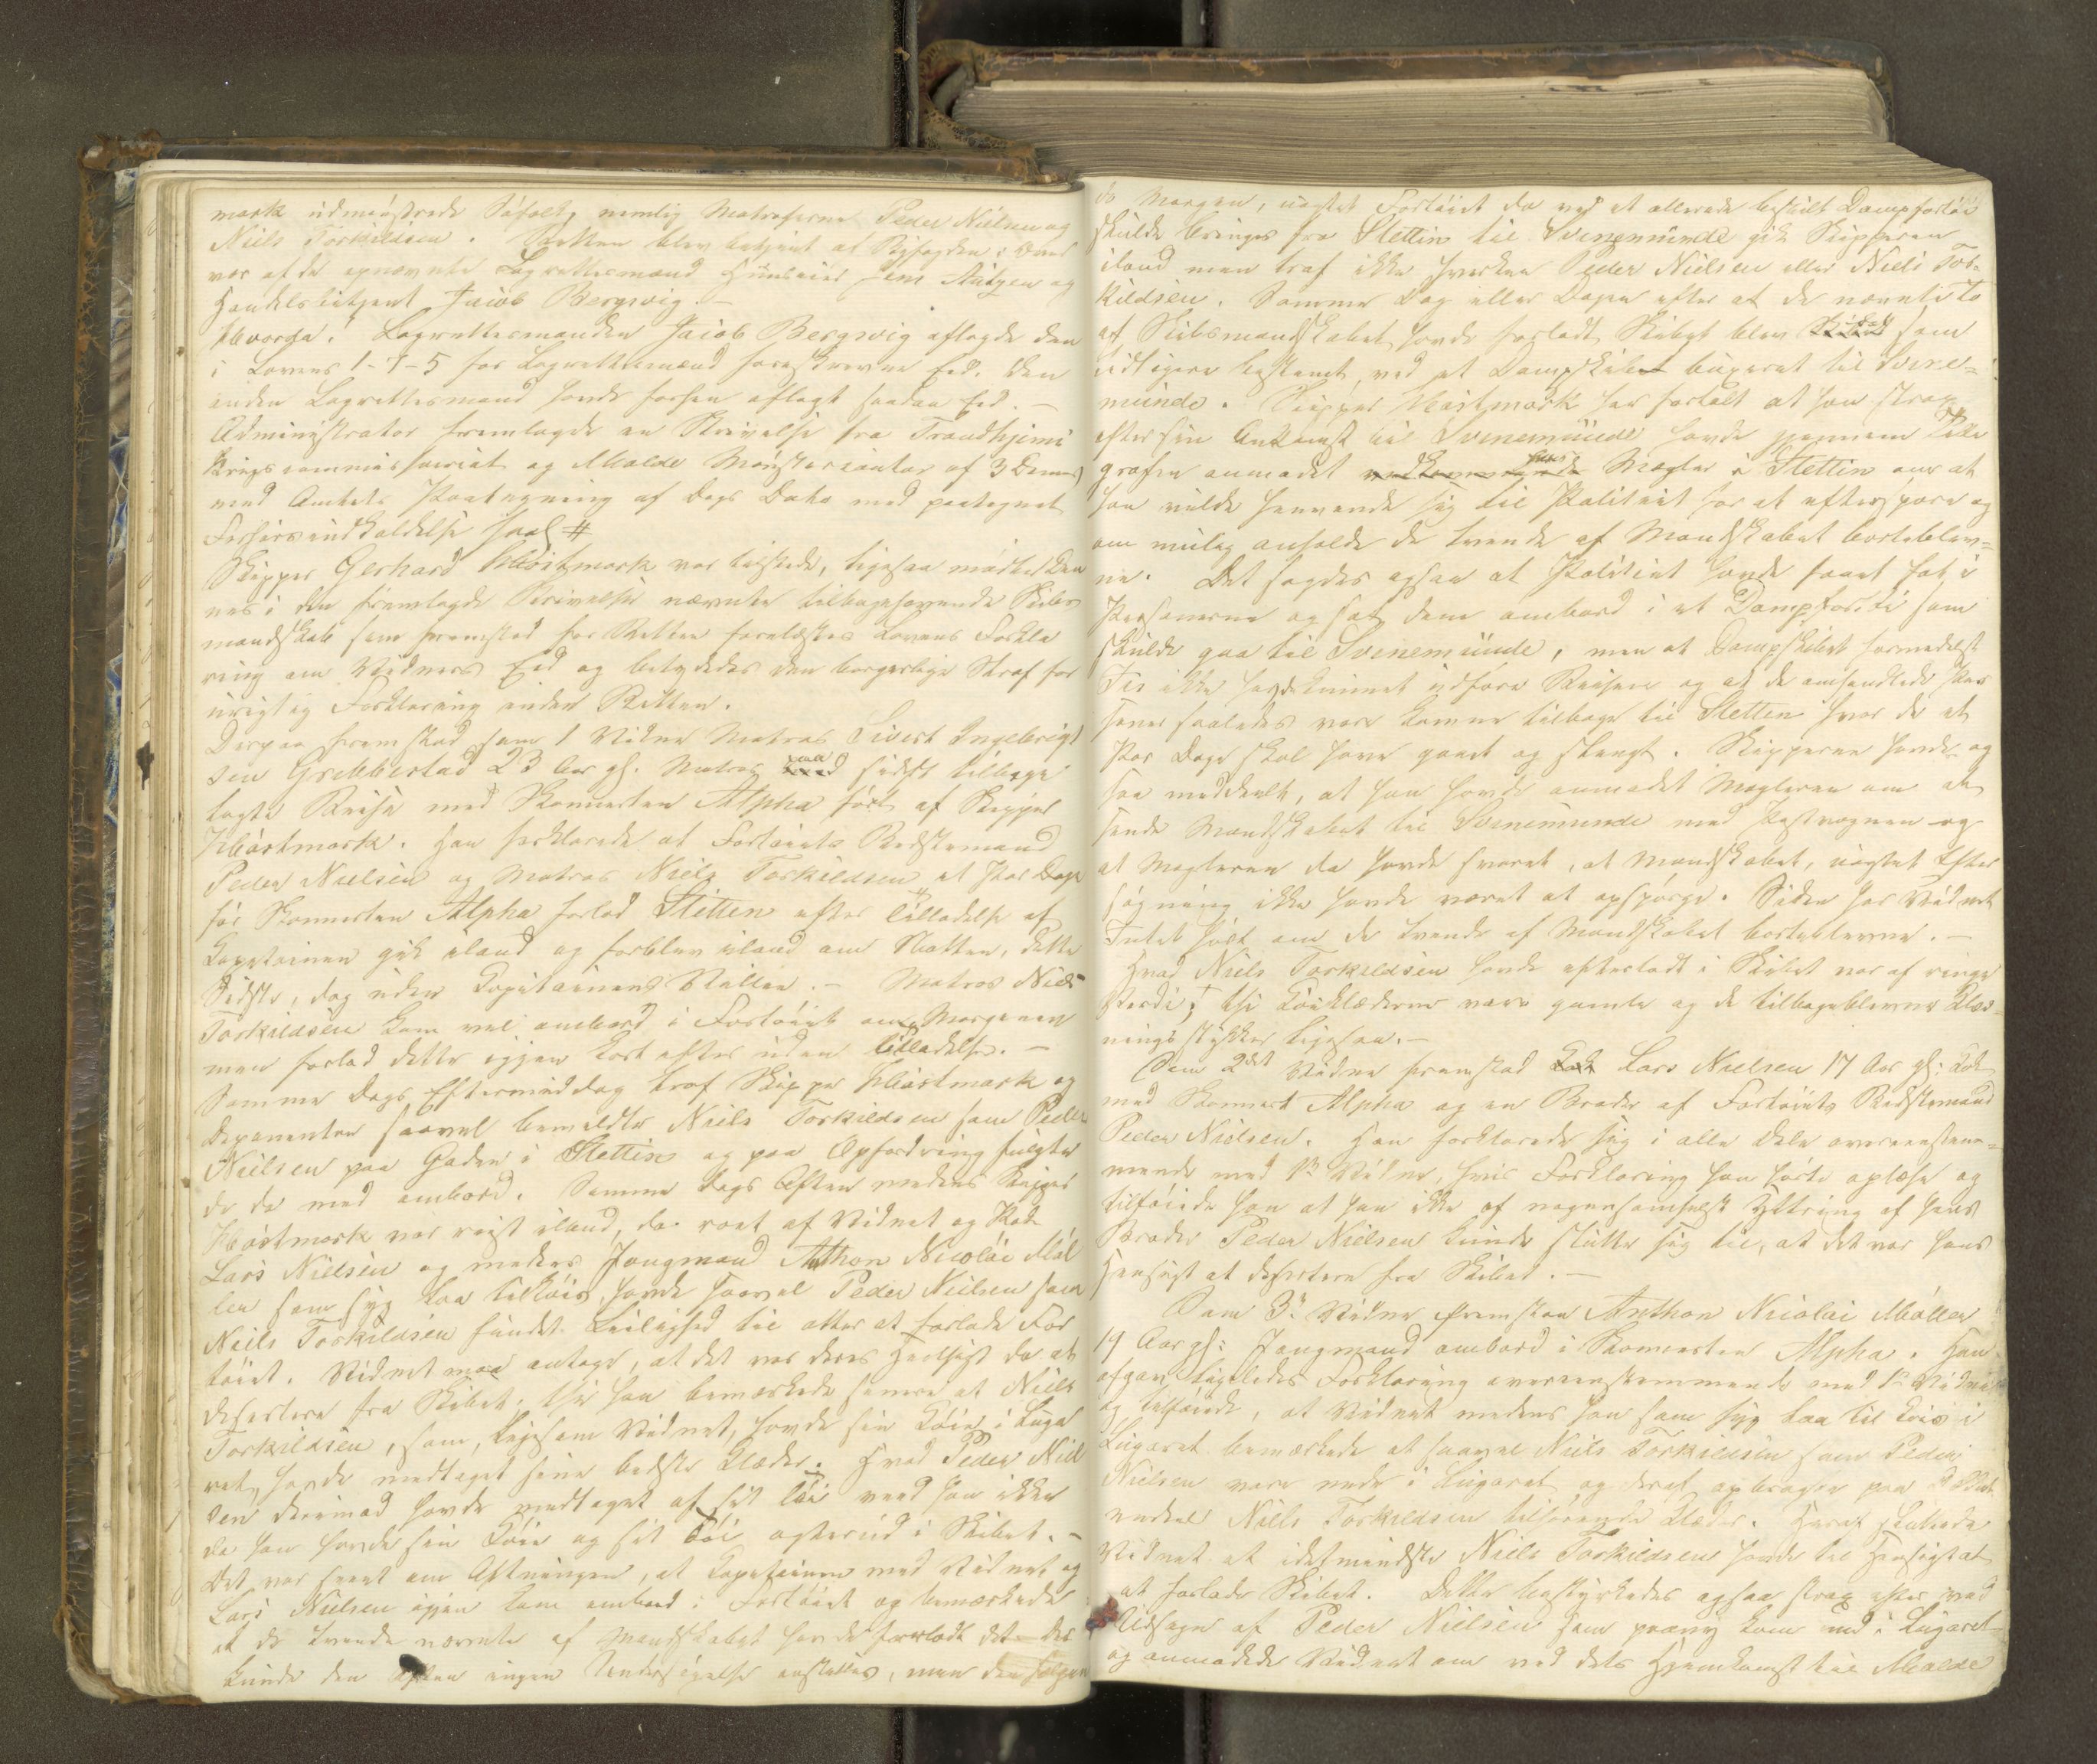 mark udmønstrede Søfolk, nemlig Matroserne Peder Nielsen og
Niels Torkildsen. Retten blev betjent af Byfogden; Ved
var af de opnævnte Lagrettesmænd Huuseier Jens Autzen og
Handelsbetjent Jacob Bergsvig. –
Hvorda: Lagrettesmanden Jacob Bergsvig aflagde den
i Lovens 1-7-5 for Lagrettesmænd foreskrevne Eed. Den
anden Lagrettesmand havde forhen aflagt saadan Eed. –
Administrator fremlagde en Skrivelse fra Trondhjems
Krigscommissariat og Molde Mønstercontor af 3 Dennes
med Amtets Paategning af Dags Dato med paategnet
Forhørsindkaldelse saal #
Skipper Gerhard Høstmark var tilstede, ligesaa mødte Den
nes i den fremlagde Skrivelse nævnte tilbagehavende Skibs
mandskab som fremstod for Retten forelæstes Lovens Forkla
ring om Vidners Eed og betydedes den borgerlige Straf for
urigtig Forklaring inden Retten.
Derpaa fremstod som 1 Vidne Matros Sivert Ingebrigt
sen Grebbestad 23 Aar gl. Matros paa sidst tilbage
lagte Reise med Skonnerten Alpha ført af Skipper
Høstmark. Han forklarede at Fartøiets Bedstemand
Peder Nielsen og Matros Niels Torkildsen et Par Dage
før Skonnerten Alpha forlod Stettin efter Tilladelse af
Capitainen gik iland og forblev iland om Natten, dette
Sidste, dog uden Capitainens Villie. – Matros Niels
Torkildsen kom vel ombord i Fartøiet om Morgenen
men forlod dette igjen kort efter uden Tilladelse. –
Samme Dags Eftermiddag traf Skipper Høstmark og
Deponenten saavel bemeldte Niels Torkildsen som Peder
Nielsen paa Gaden i Stettin og paa Opfordring fulgte
de da med ombord. Samme Dags Aften medens Skipper
Høstmark var reist iland, da roet af Vidnet og Kok
Lars Nielsen og medens Jungmand Anthon Nicolai Møl
ler som syg laa tilkøis, havde saavel Peder Nielsen som
Niels Torkildsen fundet Leilighed til atter at forlade Far
tøiet. Vidnet maa antage, at det var deres Hensigt da at
desertere fra Skibet, thi han bemærkede senere at Niels
Torkildsen, som, ligesom Vidnet, havde sin Køie i Luga
ret, havde medtaget sine bedste Klæder. Hvad Peder Niel
sen derimod havde medtaget af sit Tøi veed han ikke
da han havde sin Køie og sit Tøi agterud i Skibet. –
Det var seent om Aftningen, at Capitainen med Vidnet og
Lars Nielsen igjen kom ombord i Fartøiet og bemærkede
at de tvende nævnte af Mandskabet havde forladt det. Der
kunde den Aften ingen Undersøgelse anstilles, men den følgen
de Morgen, uagtet Fartøiet da ved et allerede bestilt Dampfartøi
skulde bringes fra Stettin til Svinemünde gik Skipperen
iland men traf ikke hverken Peder Nielsen eller Niels Tor-
kildsen. Samme Dag eller Dagen efter at de nævnte to
af Skibsmandskabet havde forladt Skibet blev Skibet som
tidligere bestemt, ved et Dampskibet buxeret til Svine-
münde. Skipper Høstmark har fortalt at han strax
efter sin Ankomst til Svinemünde havde gjennem Tele
grafen anmodet sin Mægler i Stettin om at
han vilde henvende sig til Politiet for at efterspore og
om mulig anholde de tvende af Mandskabet borteblev-
ne. Det sagdes ogsaa at Politiet havde faaet fat i
Personerne og sat dem ombord i et Dampfartøi som
skulde gaa til Svinemünde, men at Dampskibet formedelst
Iis ikke havde kunnet udføre Reisen og at de omhandlede Per
soner saaledes vare komne tilbage til Stettin hvor de et
Par Dage skal have gaaet og slængt. Skipperen havde og
saa meddeelt, at han havde anmodet Mægleren om at
sende Mandskabet til Svinemünde med Postvognen og
at Mægleren da havde svaret, at Mandskabet, uagtet Efter
søgning ikke havde været at opspørge. Siden har Vidnet
Intet hørt om de tvende af Mandskabet borteblevne. –
Hvad Niels Torkildsen havde efterladt i Skibet var af ringe
Værdi; thi Køieklæderne vare gamle og de tilbageblevne Klæd-
ningsstykker ligesaa. –
Som 2det Vidne fremstod Lars Nielsen 17 Aar gl: Kok
med Skonnert Alpha og en Broder af Fartøiets Bedstemand
Peder Nielsen. Han forklarede sig i alle Dele overeensstem-
mende med 1ste Vidne, hvis Forklaring han hørte oplæse og
tilføiede han at han ikke af nogensomhelst Yttring af hans
Broder Peder Nielsen kunde slutte sig til, at det var hans
Hensigt at desertere fra Skibet. –
Som 3de Vidne fremstod Anthon Nicolai Møller
19 Aar gl: Jungmand ombord i Skonnerten Alpha. Han
afgav ligeledes Forklaring overeensstemmende med 1ste Vidne
og tilføiede, at Vidnet medens han som syg laa til Køis i
Lugaret bemærkede at saavel Niels Torkildsen som Peder
Nielsen vare nede i Lugaret og deraf opbragte paa Dækket
endeel Niels Torkildsen tilhørende Klæder. Heraf sluttede
Vidnet at idetmindste Niels Torkildsen havde til Hensigt at
at forlade Skibet. Dette bestyrkedes ogsaa strax efter ved
Udsagn af Peder Nielsen som paany kom ned i Lugaret
og anmodede Vidnet om ved dets Hjemkomst til Molde